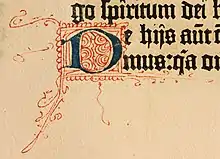 go spiritum dei h
De hijs aut̃
mus: q̃a